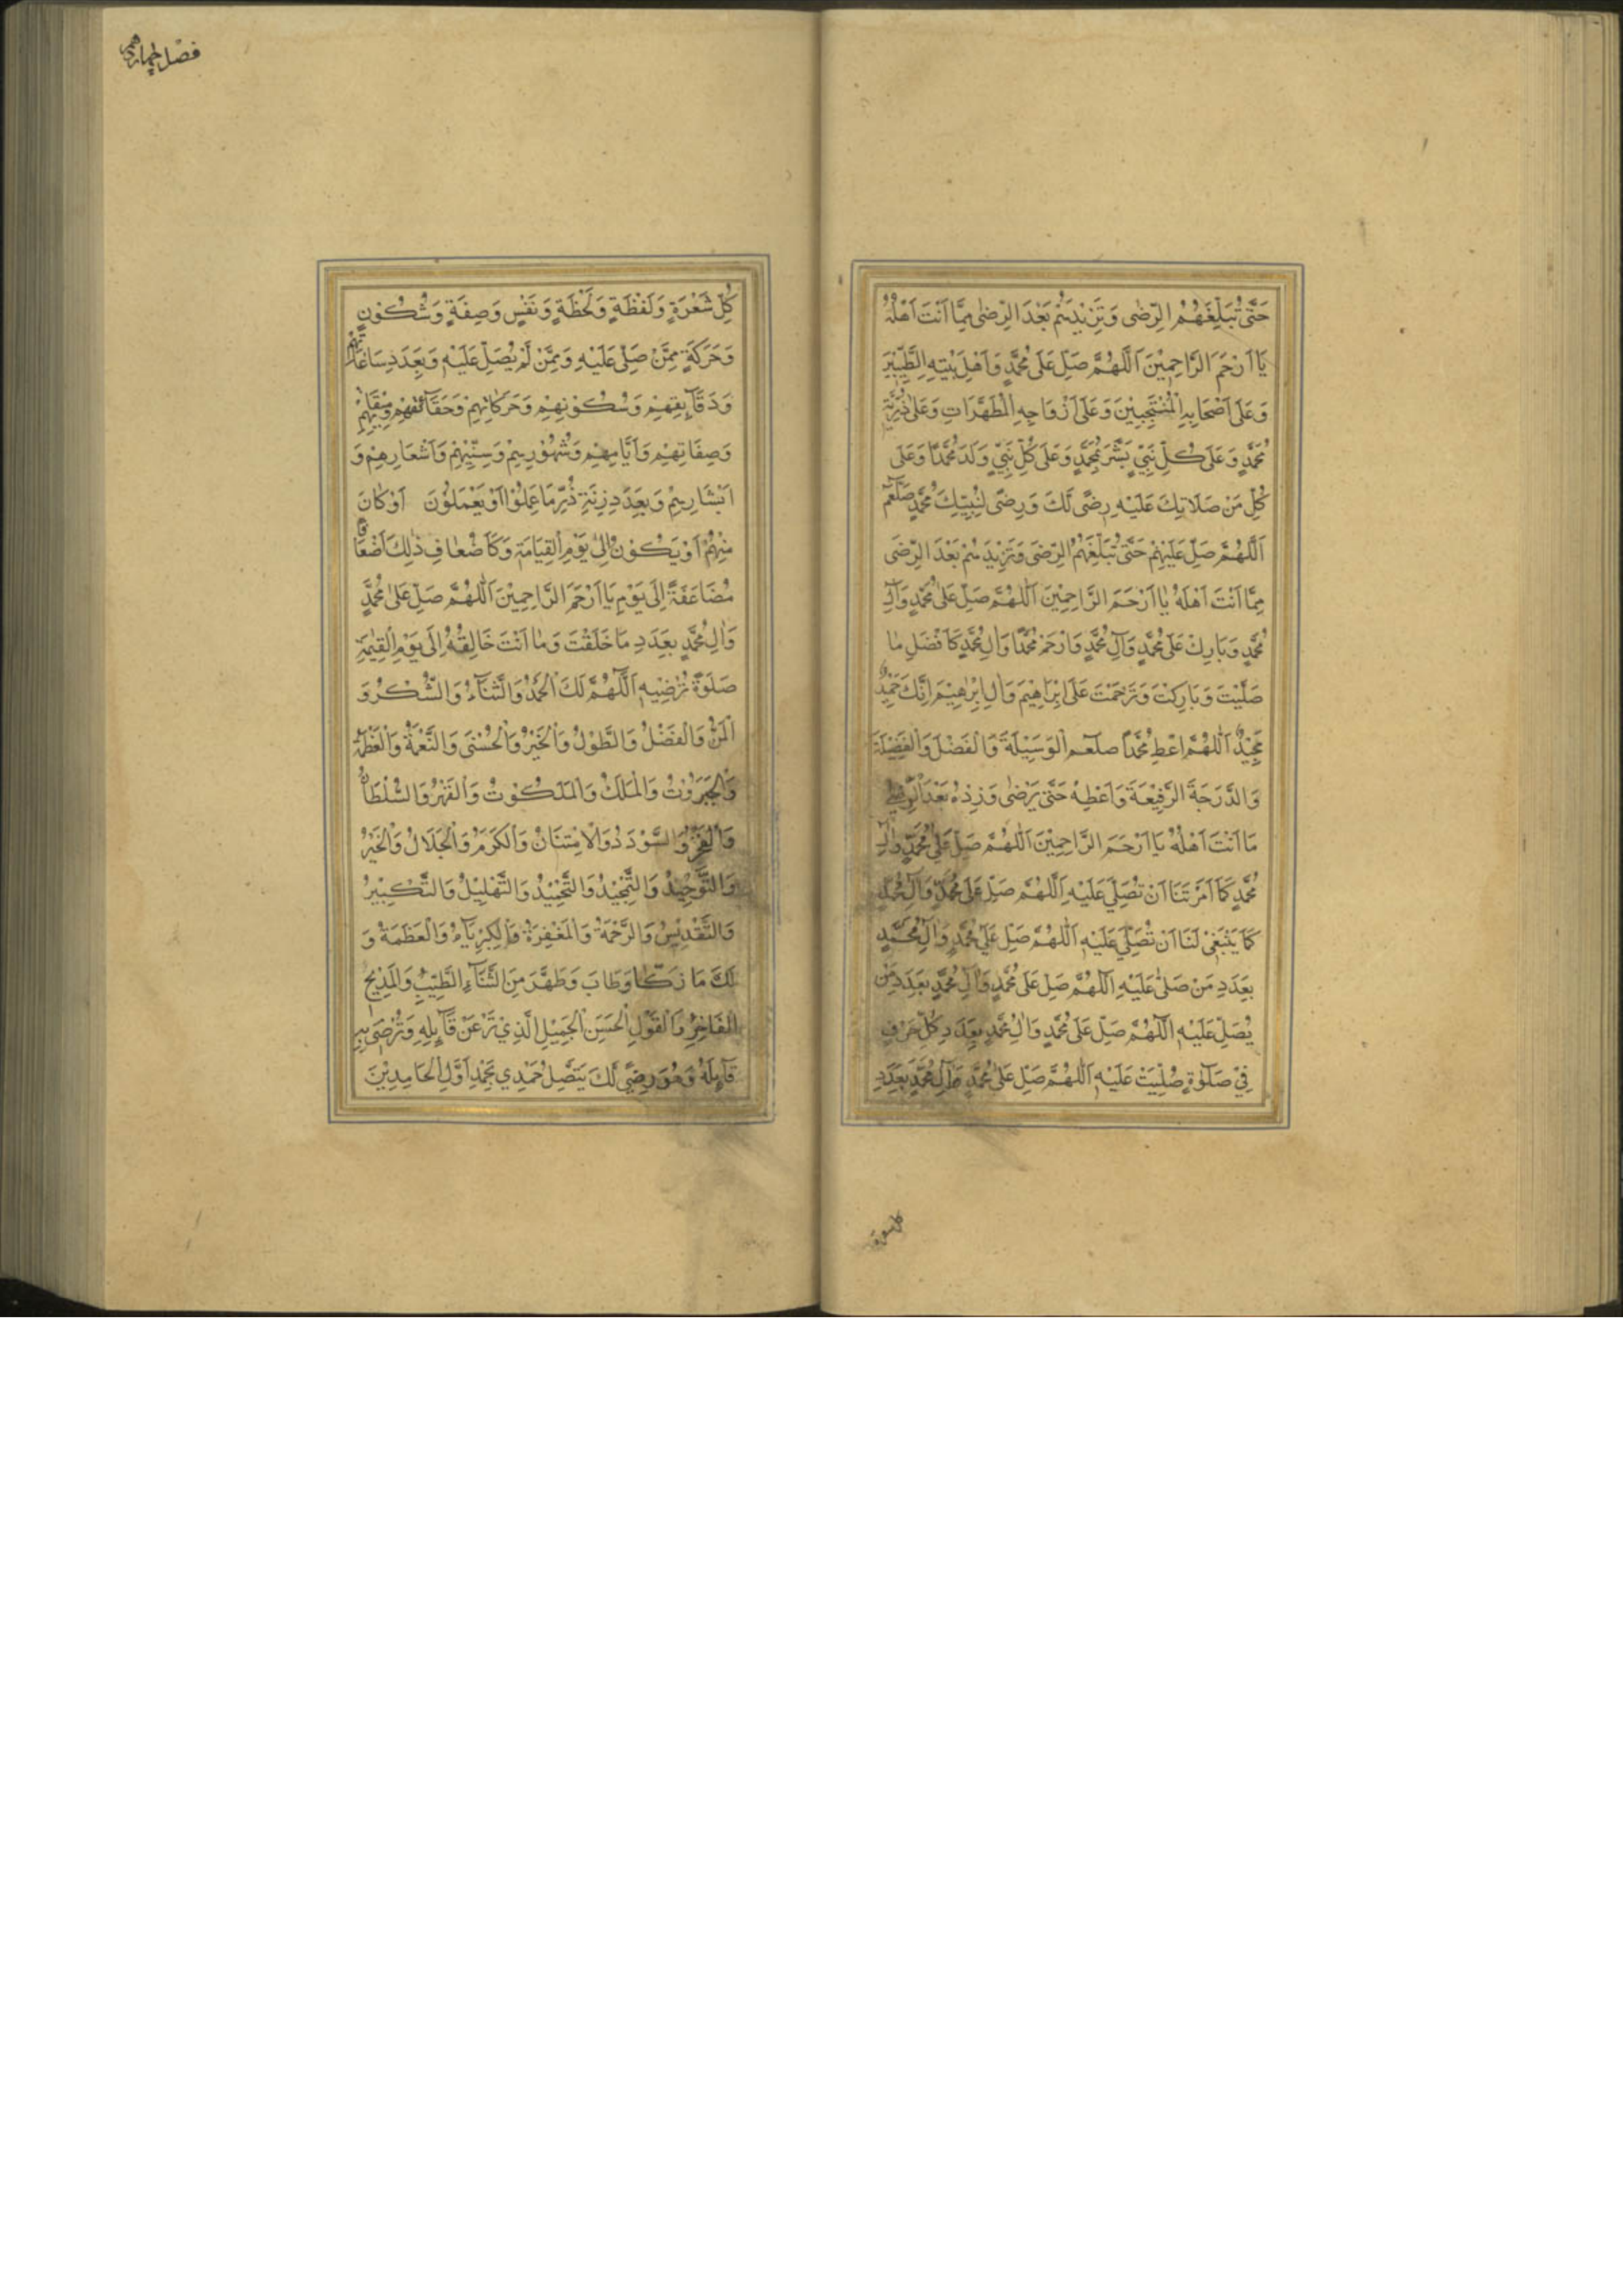 حَتّٰى تُبَلِّغَهُمُ الرِّضٰى وَتَزِيْدَهُمْ بَعْدَ الرِّضٰى مِمَّا اَنْتَ اَهْلُهُ
يَا اَرْحَمَ الرَّاحِمِيْنَ اَللّٰهُمَّ صَلِّ عَلَى مُحَمَّدٍ وَاَهْلِ بَيْتِهِ الطَّيِّبِيْنَ
وَعَلَى اَصْحَابِهِ الْمُنْتَجَبِيْنَ وَعَلَى اَزْوَاجِهِ الْمُطَهَّرَاتِ وَعَلَى ذُرِّيَّةِ
مُحَمَّدٍ وَعَلَى كُلِّ نَبِيٍّ بَشَّرَ بِمُحَمَّدٍ وَعَلَى كُلِّ نَبِيٍّ وَلَدَ مُحَمَّدًا وَعَلَى
كُلِّ مَنْ صَلَاتِكَ عَلَيْهِ رِضًى لَكَ وَرِضًى لِنَبِيِّكَ مُحَمَّدٍ صلعم
اَللّٰهُمَّ صَلِّ عَلَيْهِمْ حَتّٰى تُبَلِّغَهُمُ الرِّضَى وَتَزِيْدَهُمْ بَعْدَ الرِّضَى
مِمَّا اَنْتَ اَهْلُهُ يَا اَرْحَمَ الرَّاحِمِيْنَ اَللّٰهُمَّ صَلِّ عَلٰى مُحَمَّدٍ وَآلِ
مُحَمَّدٍ وَبَارِكْ عَلَى مُحَمَّدٍ وَآلِ مُحَمَّدٍ وَارْحَمْ مُحَمَّدًا وَاٰلِ مُحَمَّدٍ كَاَفْضَلِ مَا
صَلَّيْتَ وَبَارَكْتَ وَتَرَحَّمْتَ عَلَى اِبْرَاهِيْمَ وَاٰلِ اِبْرٰهِيْمَ اِنَّكَ حَمِيْدٌ
مَجِيْدٌ اَللّٰهُمَّ اعْطِ مُحَمَّدًا صلعم الْوَسِيْلَةَ وَالْفَضْلَ وَالْفَضِيْلَةَ
وَالدَّرَجَةَ الرَّفِيْعَةَ وَاَعْطِهِ حَتّٰى يَرْضٰى وَزِدْهُ بَعْدَ الرِّضٰى
مَا اَنْتَ اَهْلُهُ يَا اَرْحَمَ الرَّاحِمِيْنَ اَللّٰهُمَّ صَلِّ عَلٰى مُحَمَّدٍ وَاٰلِ
مُحَمَّدٍ كَمَا اَمَرْتَنَا اَنْ نُصَلِّيَ عَلَيْهِ اَللّٰهُمَّ صَلِّ عَلَى مُحَمَّدٍ وَآلِ مُحَمَّدٍ
كَمَا يَنْبَغِيْ لَنَا اَنْ نُصَلِّيَ عَلَيْهِ اَللّٰهُمَّ صَلِّ عَلَي مُحَمَّدٍ وَاٰلِ مُحَمَّدٍ
بِعَدَدِ مَنْ صَلَّى عَلَيْهِ اَللّٰهُمَّ صَلِّ عَلَى مُحَمَّدٍ وَاٰلِ مُحَمَّدٍ بِعَدَدِ مَنْ
يُصَلِّ عَلَيْهِ اَللّٰهُمَّ صَلِّ عَلَى مُحَمَّدٍ وَاٰلِ مُحَمَّدٍ بِعَدَدِ كُلِّ حَرْفٍ
فِيْ صَلٰوةٍ صُلِّيَتْ عَلَيْهِ اَللّٰهُمَّ صَلِّ عَلٰى مُحَمَّدٍ وَآلِ مُحَمَّدٍ بِعَدَدِ
كل شعرة
فصل چهاردهم
كُلِّ شَعْرَةٍ وَلَفْظَةٍ وَلَحْظَةٍ وَنَفَسٍ وَصِفَةٍ وَسُكُوْنٍ
وَحَرَكَةٍ مِمَّنْ صَلّٰى عَلَيْهِ وَمِمَّنْ لَمْ يُصَلِّ عَلَيْهِ وَبِعَدَدِ سَاعَاتِهِمْ
وَدَقَآئِقِهِمْ وَسُكُوْنِهِمْ وَحَرَكَاتِهِمْ وَحَقَآئِقِهِمْ وَمِيْقَاتِهِمْ
وَصِفَاتِهِمْ وَاَيَّامِهِمْ وَشُهُوْرِهِمْ وَسِنِيْهِمْ وَاَشْعَارِهِمْ وَ
اَبْشَارِهِمْ وَبِعَدَدِ زِنَةِ ذَرِّ مَا عَمِلُوْا اَوْ يَعْمَلُوْنَ اَوْ كَانَ
مِنْهُمْ اَوْ يَكُوْنُ اِلٰى يَوْمِ الْقِيَامَةِ وَكَاَضْعَافِ ذٰلِكَ اَضْعَافًا
مُضَاعَفَةً اِلَى يَوْمِ يَا اَرْحَمَ الرَّاحِمِيْنَ اَللّٰهُمَّ صَلِّ عَلٰى مُحَمَّدٍ
وَاٰلِ مُحَمَّدٍ بِعَدَدِ مَا خَلَقْتَ وَمَا اَنْتَ خَالِقُهُ اِلَى يَوْمِ الْقِيٰمَةِ
صَلٰوةً تُرْضِيْهِ اَللّٰهُمَّ لَكَ الْحَمْدُ وَالثَّنَآءُ وَالشُّكْرُ وَ
الْمَنُّ وَالْفَضْلُ وَالطَّوْلُ وَالْخَيْرُ وَالْحُسْنٰى وَالنِّعْمَةُ وَالْعَظَمَةُ
وَالْجَبَرُوْتُ وَالْمُلْكُ وَالْمَلَكُوْتُ وَالْقَهْرُ وَالسُّلْطَانُ
وَالْفَخْرُ وَالسُّوْدَدُ وَالْاِمْتِنَانُ وَالْكَرَمُ وَالْجَلَالُ وَالْخَيْرُ
وَالتَّوْحِيْدُ وَالتَّمْجِيْدُ وَالتَّحْمِيْدُ وَالتَّهْلِيْلُ وَالتَّكْبِيْرُ
وَالتَّقْدِيْسُ وَالرَّحْمَةُ وَالْمَغْفِرَةُ وَالْكِبْرِيَآءُ وَالْعَظَمَةُ وَ
لَكَ مَا زَكَا وَطَابَ وَطَهُرَ مِنَ الثَّنَآءِ الطَّيِّبِ وَالْمَدِيْحِ
الْفَاخِرِ وَالْقَوْلِ الْحَسَنِ الْجَمِيْلِ الَّذِيْ تَرْضَى عَنْ قَآئِلِهِ وَتُرْضِي بِهِ
قَآئِلَهُ وَهُوَ رِضًى لَكَ يَتَّصِلُ حَمْدِي بِحَمْدِ اَوَّلِ الْحَامِدِيْنَ